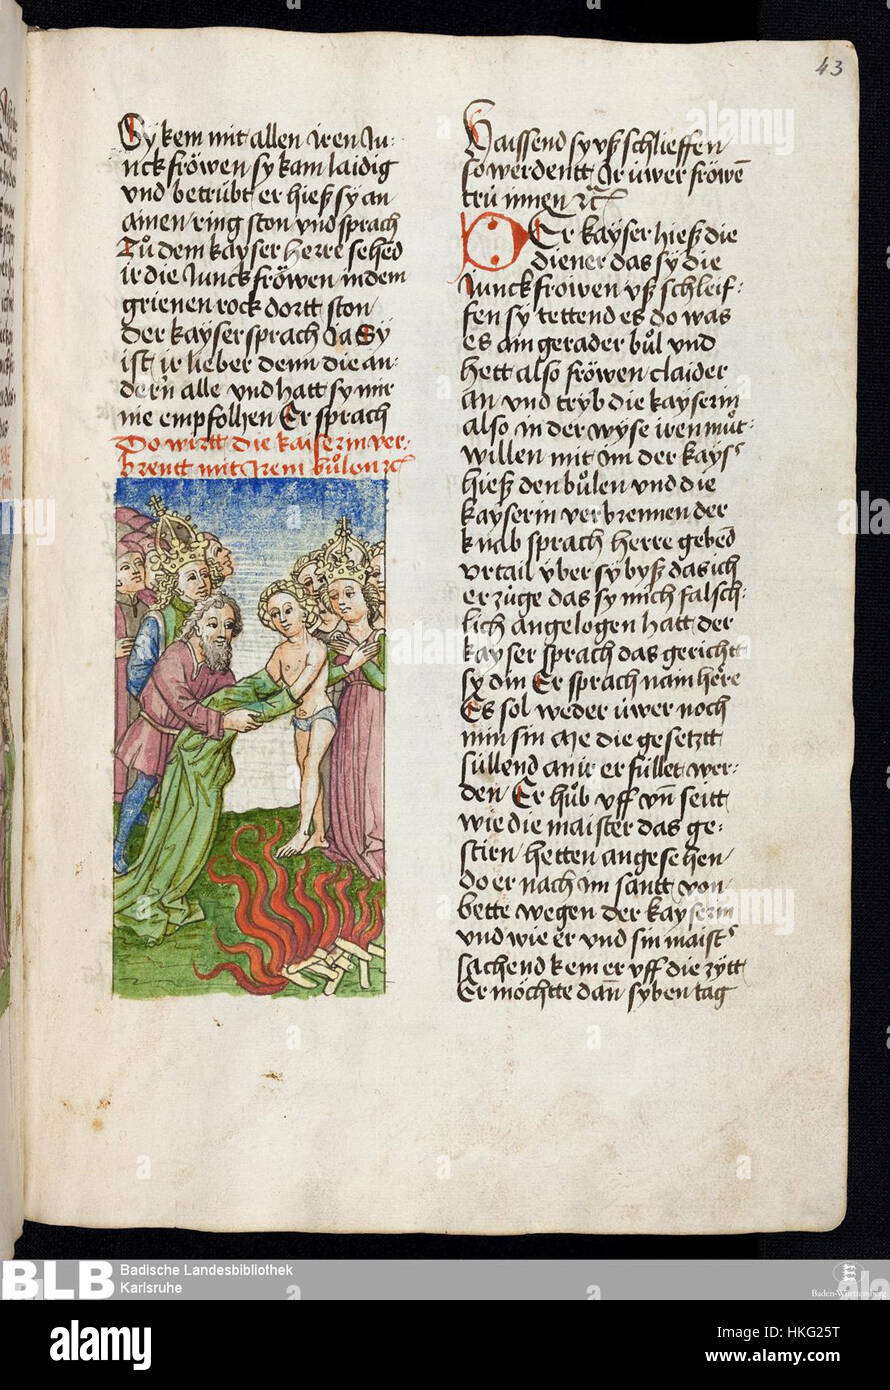 43
Sy kem mit allen iren Ju:
nckfröwen sy kam laidig
vnd betrübt er hieß sy an
ainen ring ston vnd sprach
Zů dem kayser herre sehend
ir die Junckfröwen in dem
grienen rock dortt ston
der kayser sprach Ja Sy
ist ir lieber denn die an:
dern alle vnd hatt sy mir
nie empfolhen Er sprach
Do wirtt die kaiserin ver:
brentt mit Irem bůlon rc
Haissend sy vß schlieffen
so werdentt Ir üwer fröwē
trü innen rc
Er kayser hieß die
diener das sy die
Junckfrowen vß schleif:
fen sy tettend es do was
es ain gerader bůl vnd
hett also fröwen claider
an vnd tryb die kayserin
also in der wyse iren můt:
willen mit im der kays
hieß den bůlen vnd die
kayserin verbrennen der
knab sprach herre gebend
vrtail über sy byß das ich
erzüge das sy mich falsch:
lich angelogen hatt der
kayser sprach das gericht
sy din Er sprach nain here
Es sol weder üwer noch
min sin Me die gesetztt
süllend an ir erfüllet wer:
den Er hůb vff vn̄ seitt
wie die maister das ge:
stirn hetten angesehen
do er nach im santt von
bette wegen der kayserin
vnd wie er vnd sin maist
sachend kem er vff die zytt
Er möchtte dan̄ syben tag
BLB
Badische Landesbibliothek
Karlsruhe
Baden-Württemberg
alamy
Image ID: HKG25T
www.alamy.com